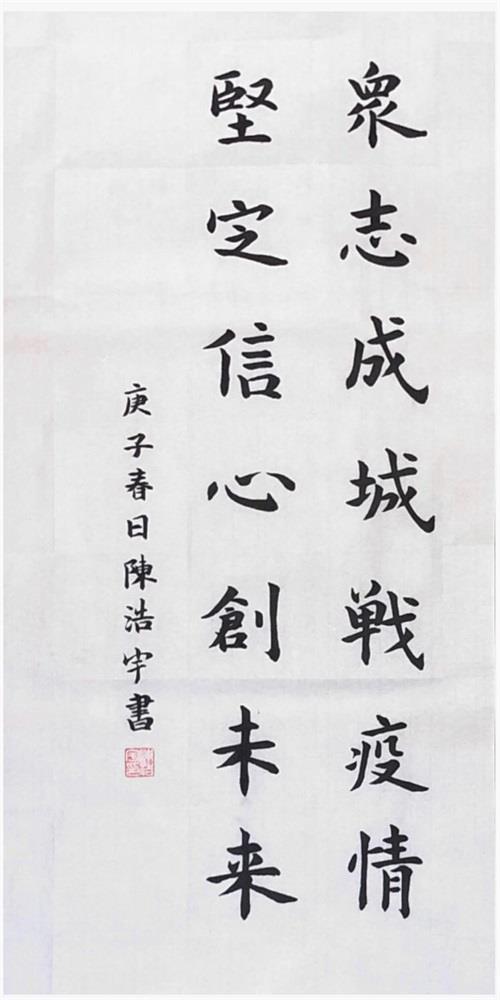 眾志成城戦疫情
堅定信心創未来
庚子春日陳浩宇書